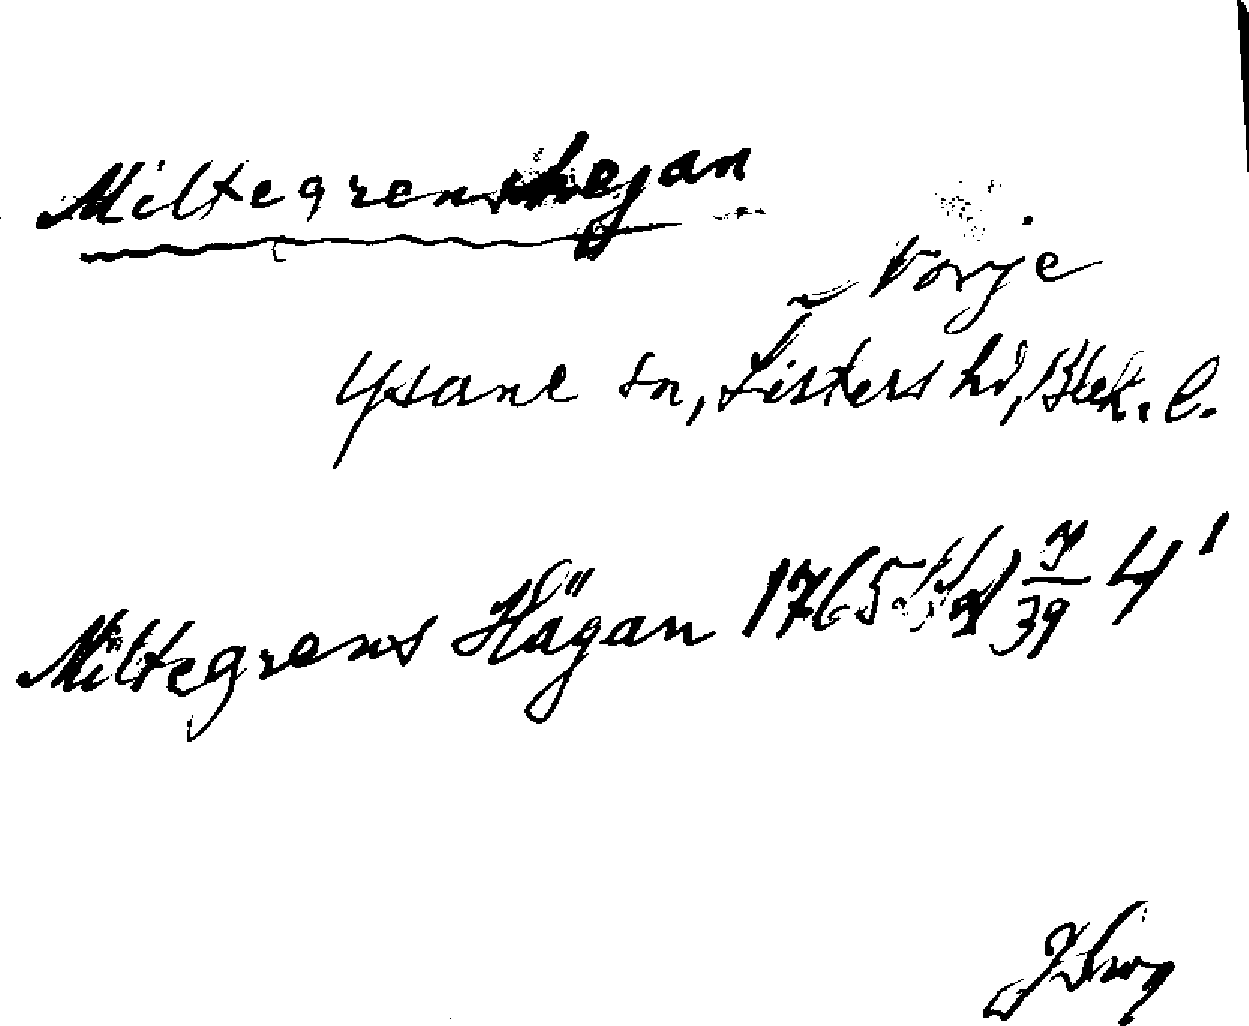 Miltegrenshejan
Norje
Ysane sn, Listers hd, Blek. l.
Miltegrens Hägan 1765 7/39 4'